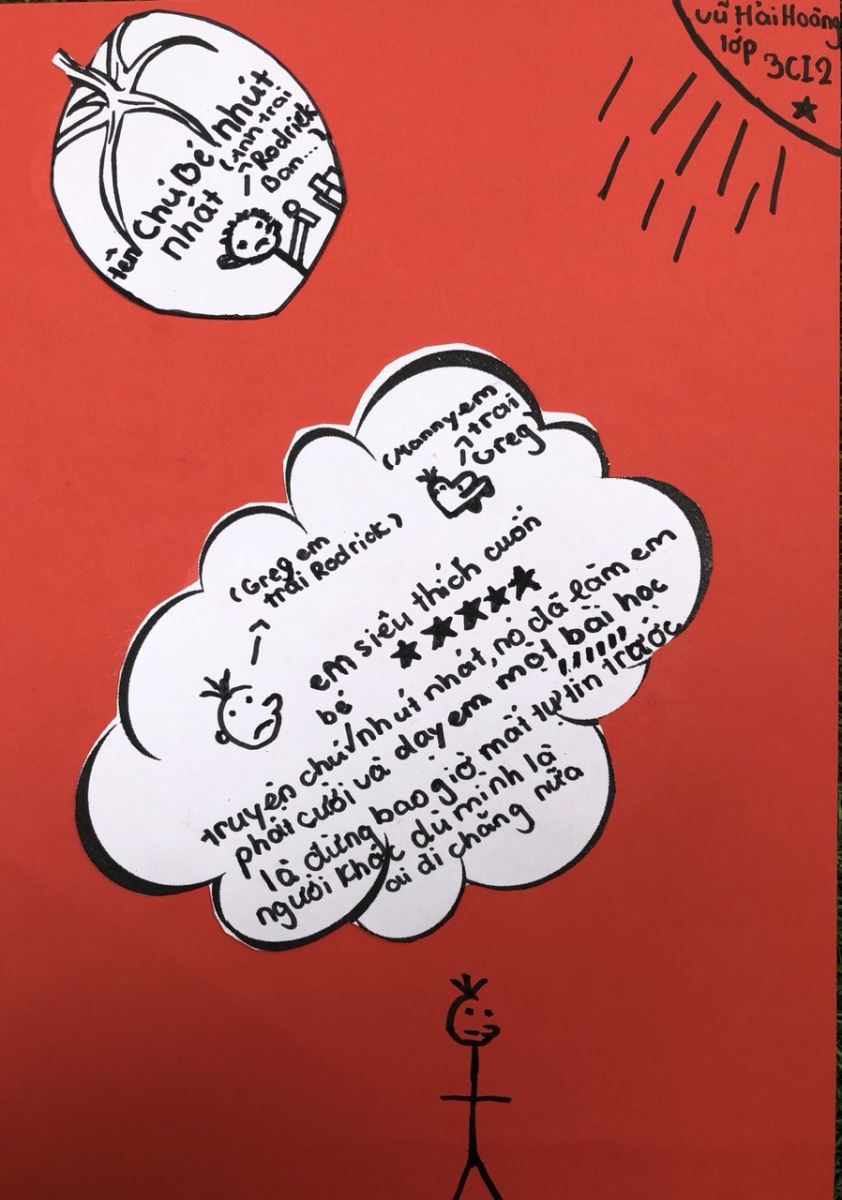 vũ Hải Hoàng
lớp 3CI2
tên Chú Bé nhút
nhát
(Anh trai
Rodrick
Ban...)
(Manny em
trai
Greg)
(Greg em
trai Rodrick)
em siêu thích cuốn
bé
truyện chú/nhút nhát, nó đã làm em
phải cười và dạy em một bài học
là đừng bao giờ mất tự tin trước
người khác dù mình là
ai đi chăng nữa